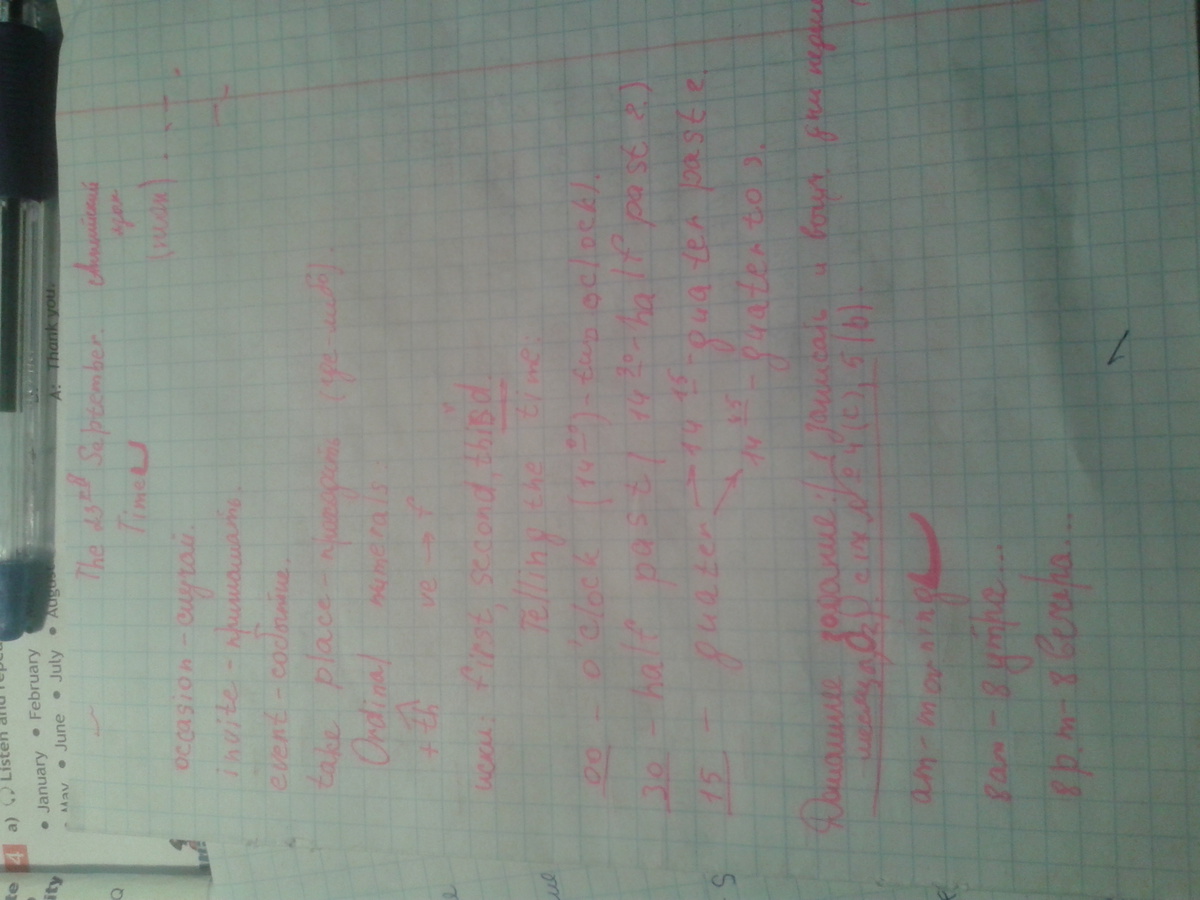 a) Listen and repea
• January • February
May • June • July • Augu
A: Thank you.
The 23rd September.
Английский
урок
Time
occasion - случай.
invite - принимать.
event - событие.
take place - проходить (где-либо)
Ordinal numerals:
+ th ve → f
искл: first, second, third
Telling the time:
00 - o'clock (14 00) - two oclock).
30 - half past ( 14 30 - half past 2.)
15 - quater → 14 15 - quater past 2.
→ 14 45 - quater to 3.
Домашнее задание: 1) записать и выуч. дни недели
месяца, 2) стх № 4 (c), 5 (b)
am - morning
8am - 8 утра...
8p.m - 8 вечера...